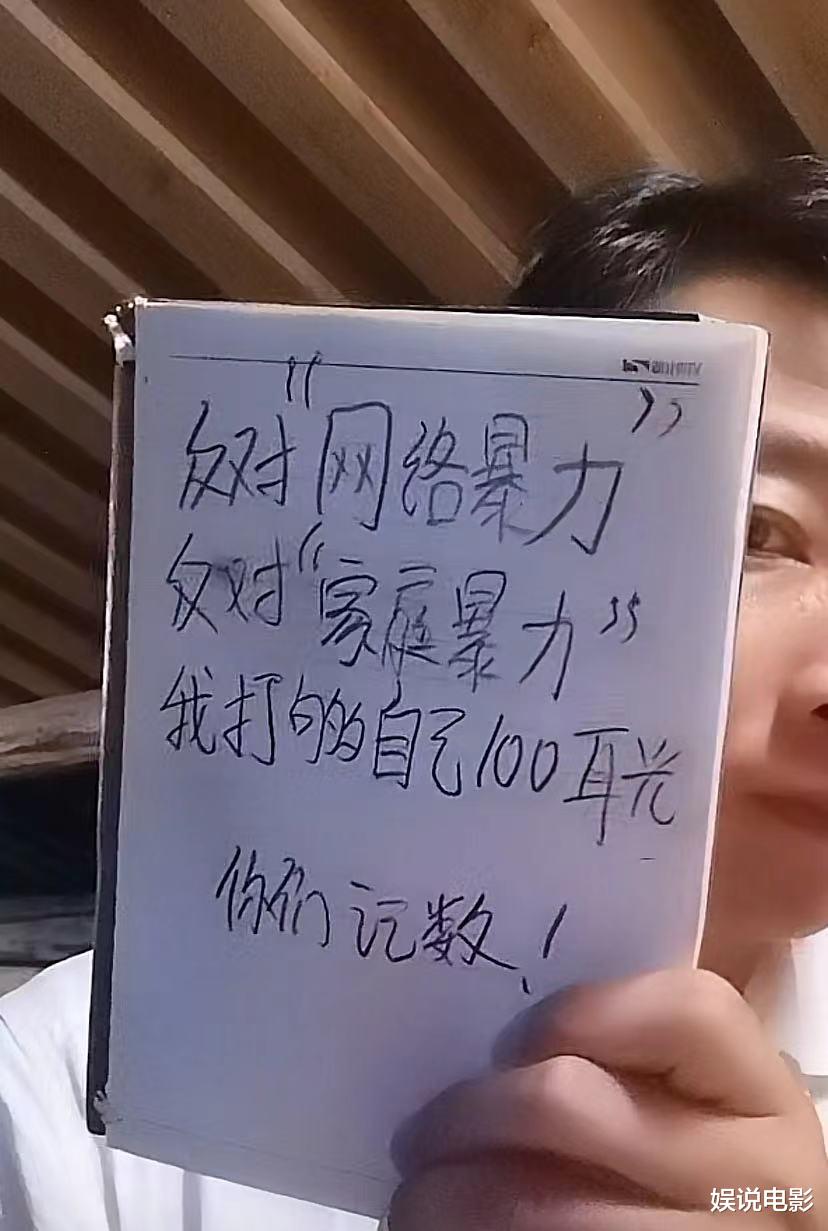 反对"网络暴力"
反对"家庭暴力"
我打够自己100耳光
你们记数!
娱说电影